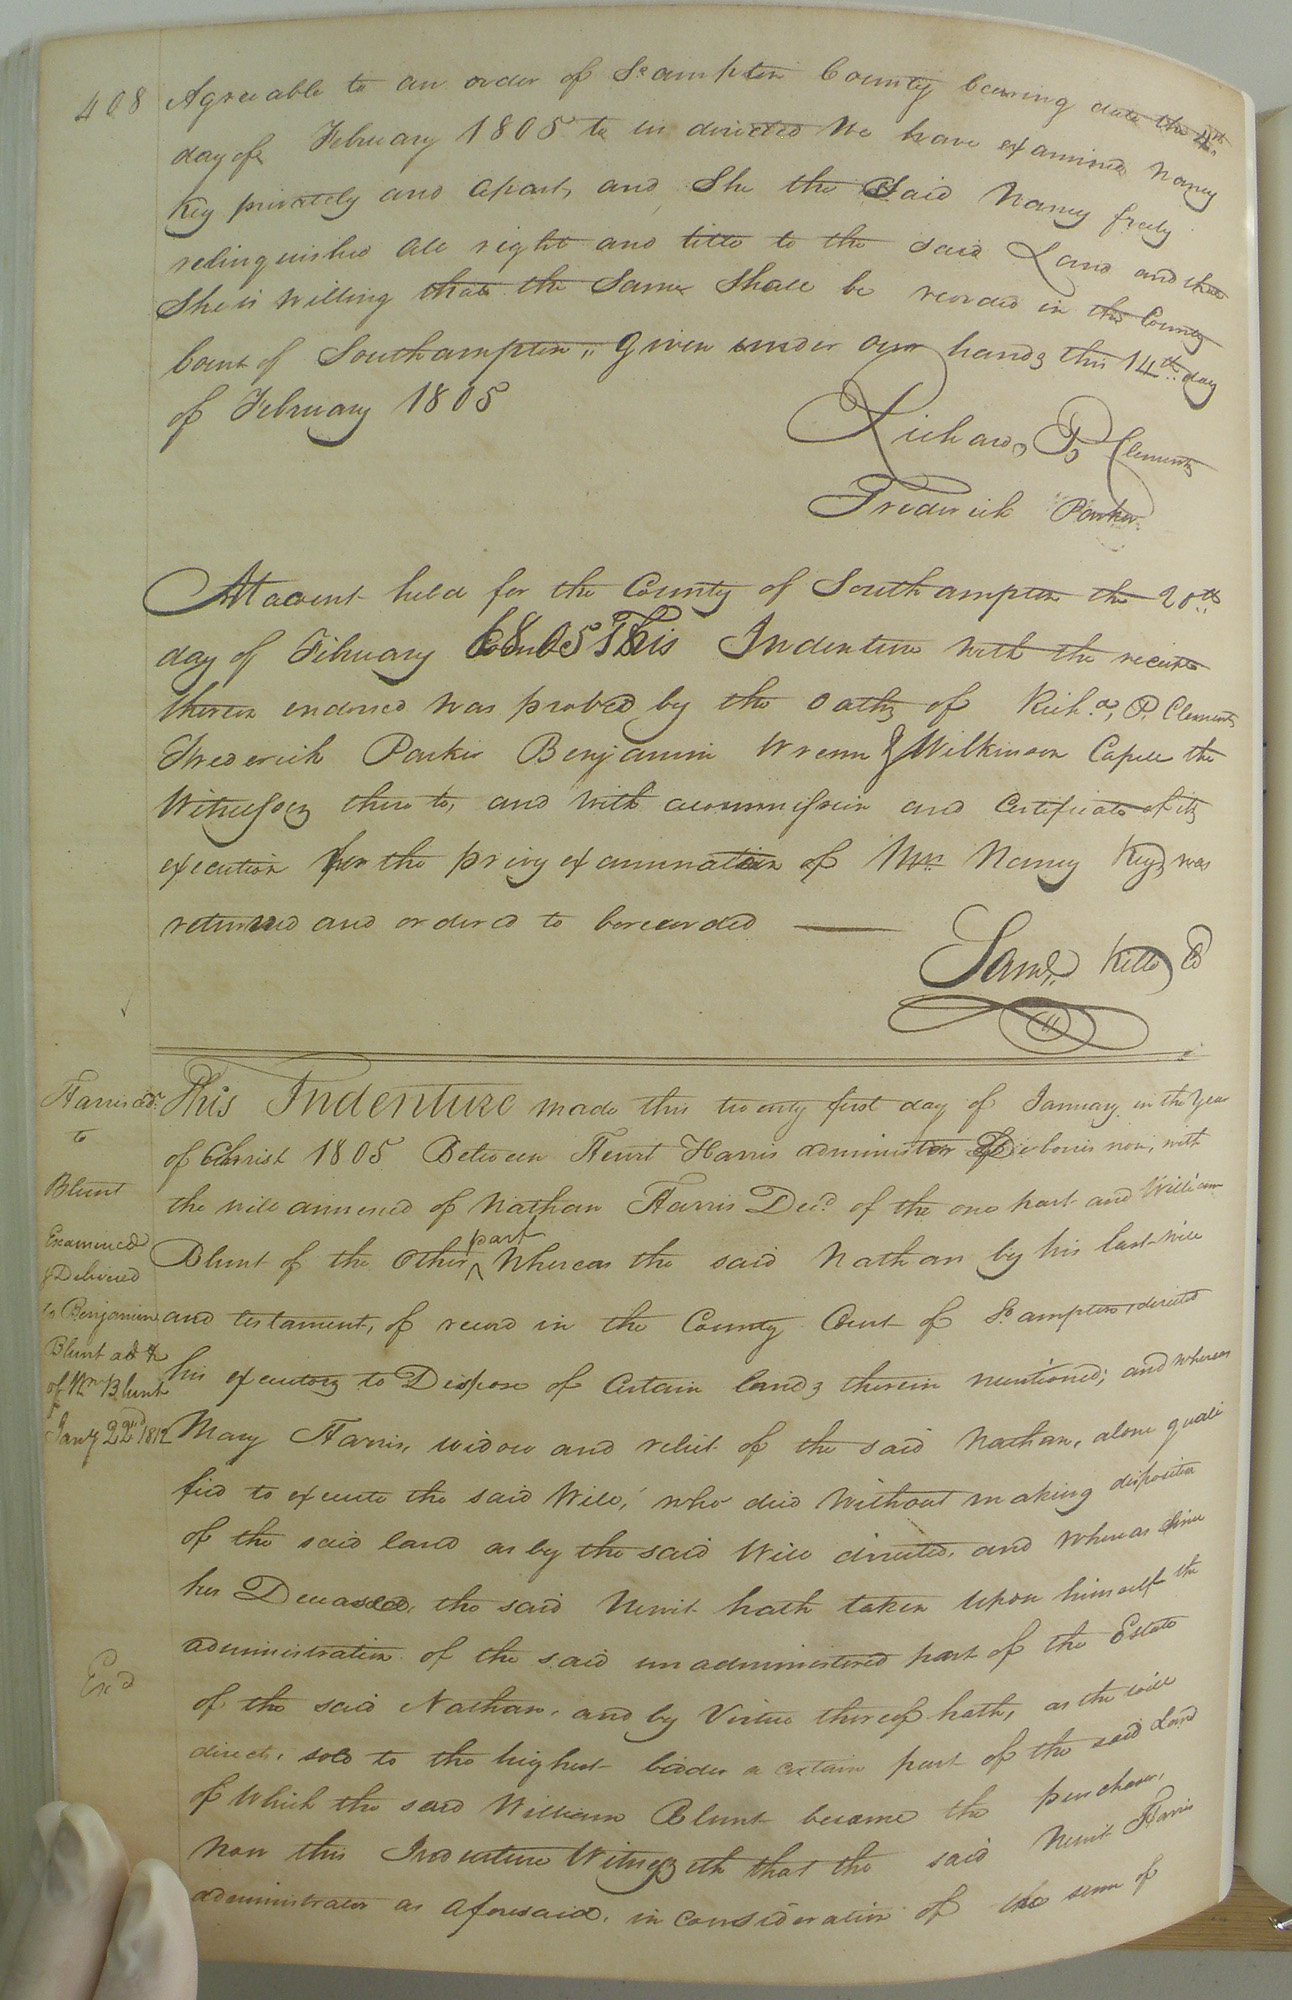 408
Agreeable to an order of So.ampton County bearing date the 4th
day of February 1805 to us directed We have examined Nancy
Key privately and apart, and She the Said Nancy freely
relinquished all right and title to the said Land and that
She is willing that the Same Shall be recorded in the County
Court of Southampton, given under our hands this 14th day
of February 1805
Richard P Clements
Frederick Parker
At a court held for the County of Southampton the 20th
day of February 1805 This Indenture with the receipt
thereon endorsed was proved by the oaths of Richd. P. Clements
Frederick Parker Benjamin Wrenn & Wilkinson Capell the
Witnesses thereto, and with a commission and Certificate of its
execution for the privy examination of Mrs Nancy Key was
returned and ordered to be recorded
Saml. Kello
Harris adr.
to
Blunt
Examined
& Delivered
to Benjamin
Blunt
of Wm Blunt
Jany 22nd 1812
Exd
This Indenture made this twenty first day of January in the Year
of Christ 1805 Between Newit Harris administrator De bonis non, with
the will annexed of Nathan Harris Decd. of the one part and William
Blunt of the other part Whereas the said Nathan by his last will
and testament, of record in the County Court of So.ampton, directed
his executors to Dispose of Certain lands therein mentioned; and whereas
Mary Harris, widow and relict of the said Nathan, alone quali
fied to execute the said Will, who died Without making disposition
of the said land as by the said Will directed, and Whereas since
her Deceased, the said Newit hath taken upon himself the
administration of the said unadministered part of the Estate
of the said Nathan, and by Virtue thereof hath, as the will
directs, sold to the highest bidder a certain part of the said Land
of Which the said William Blunt became the purchaser,
Now this Indenture Witnesseth that the said Newit Harris
administrator as aforesaid, in consideration of the sum of